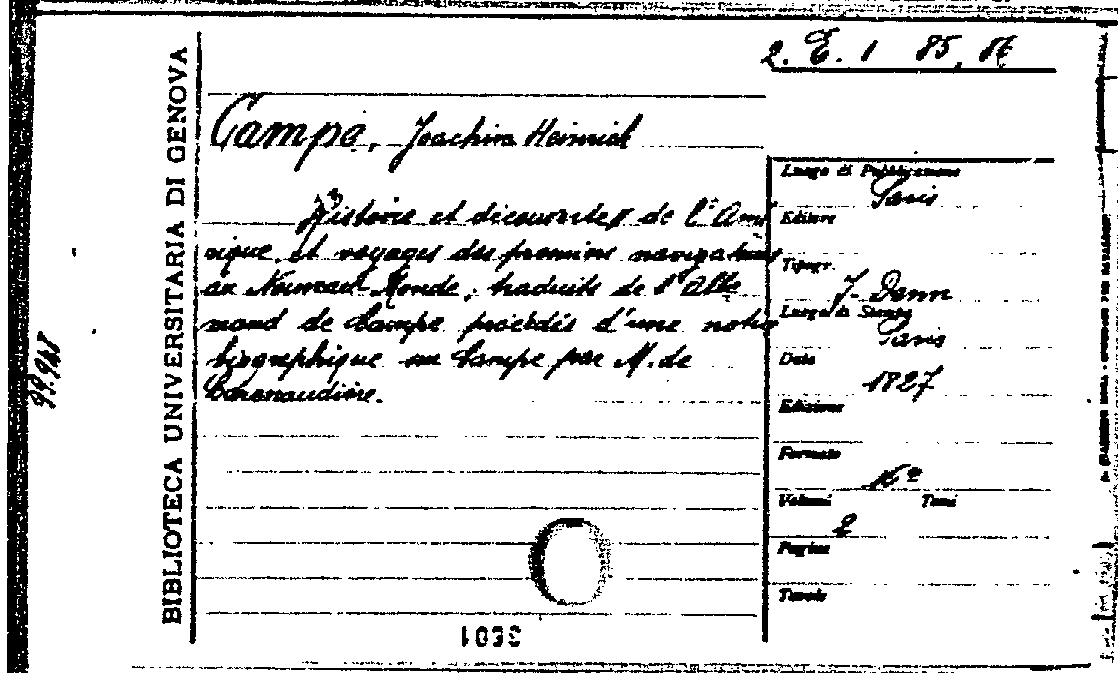 2. E. 1 85, 86
BIBLIOTECA UNIVERSITARIA DI GENOVA
Campe, Joachim Heinrich
Histoire et découvertes de l'Amé
rique, et voyages des premiers navigateurs
au Nouveau-Monde; traduits de l'Alle
mand de Campe précédés d'une notice
biographique sur Campe par M. de
Luogo di Pubblicazione
Paris
Editore
Tipogr.
J.
Luogo di Stampa
Paris
Data
1827
Edizione
Formato
16º
Volumi Tomi
2
Pagine
Tavole